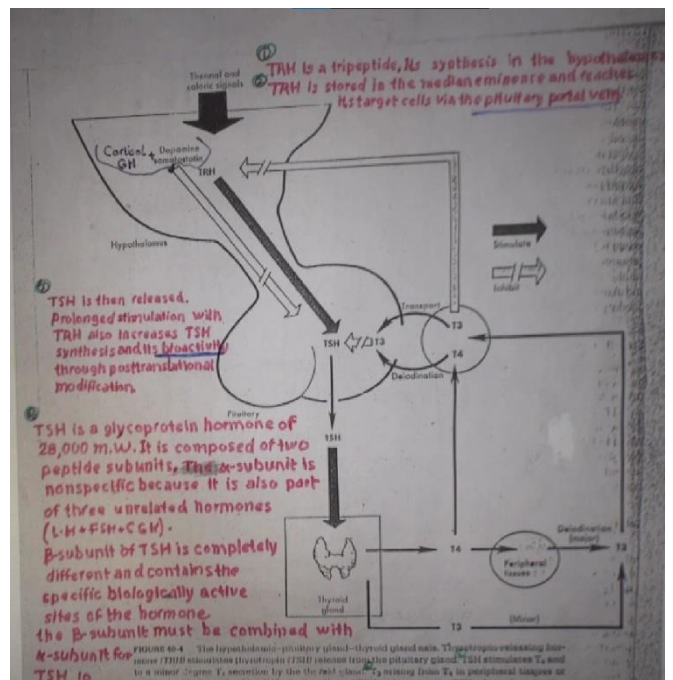 ①
TRH is a tripeptide, its synthesis in the hypothalamus
② TRH is stored in the medianeminence and reaches
its target cells via the pituitary portal vein
Thermal and
caloric signals
(Cortisol + Dopamine
GH somatostatin
TRH
Hypothalamus
Stimulate
Inhibit
TSH is then released.
Prolonged stimulation with
TRH also increases TSH
synthesis and its bioactivity
through posttranslational
modification.
Transport
T3
TSH T3
T4
Deiodination
Pituitary
TSH
TSH is a glycoprotein hormone of
28,000 m.w. It is composed of two
peptide subunits. The α-subunit is
nonspecific because it is also part
of three unrelated hormones
(L·H+FSH+CGH).
β-subunit of TSH is completely
different and contains the
specific biologically active
sites of the hormone
the β-subunit must be combined with
α-subunit for
TSH to
Deiodination
(major)
T4
T3
Peripheral
tissues
Thyroid
gland
(Minor)
T3
FIGURE 40-4 The hypothalamic-pituitary gland-thyroid gland axis. Thyrotropin-releasing hor-
mone (TRH) stimulates thyrotropin (TSH) release from the pituitary gland. TSH stimulates T₄ and
to a minor degree T₃ secretion by the thyroid gland. T₃ arising from T₄ in peripheral tissues or